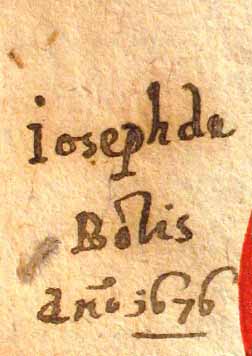 Iosephda
Bolis
Año 1676